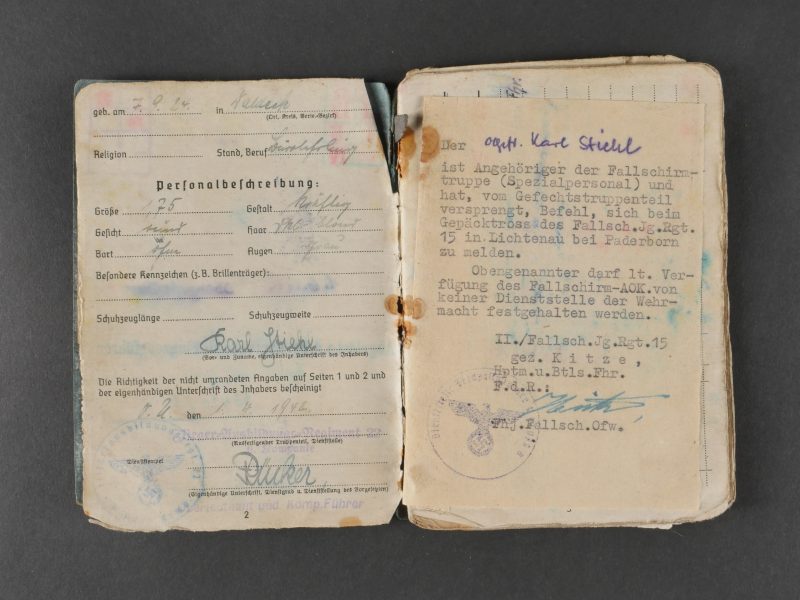 geb. am 7. 9. 24. in
(Ort, Kreis, Verw.-Bezirk)
Religion Stand, Beruf
Personalbeschreibung:
Größe 175 Gestalt kräftig
Gesicht rund Haar blond
Bart ohne Augen
Besondere Kennzeichen (z. B. Brillenträger):
Schuhzeuglänge Schuhzeugweite
Karl Stiehl
(Vor- und Zuname, eigenhändige Unterschrift des Inhabers)
Die Richtigkeit der nicht umrandeten Angaben auf Seiten 1 und 2 und
der eigenhändigen Unterschrift des Inhabers bescheinigt
den 194
(Ausfertigender Truppenteil, Dienststelle)
Dienststempel
(Eigenhändige Unterschrift, Dienstgrad u. Dienststellung des Vorgesetzten)
Oberleutnant und Komp.Führer
2
Der Karl Stiehl
ist Angehöriger der Fallschirm-
truppe (Spezialpersonal) und
hat, vom Gefechtstruppenteil
versprengt, Befehl, sich beim
Gepäcktross des Fallsch.Jg.Rgt.
15 in Lichtenau bei Paderborn
zu melden.
Obengenannter darf lt. Ver-
fügung des Fallschirm-AOK.von
keiner Dienststelle der Wehr-
macht festgehalten werden.
II./Fallsch.Jg.Rgt.15
gez. K i t z e ,
Hptm.u.Btls.Fhr.
F.d.R.:
Fhj.Fallsch.Ofw.